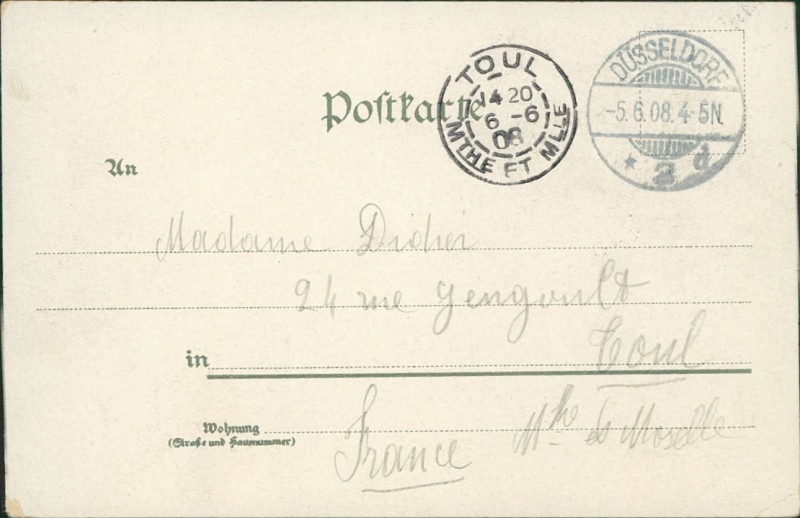 Postkarte
TOUL
14 20
6 -6
08
MTHE ET MLLE
DÜSSELDORF
-5.6.08.4-5N.
* 2 d
An
Madame Didier
24 rue Gengoult
in
Toul
Wohnung
(Straße und Hausnummer)
Mthe et Moselle
France